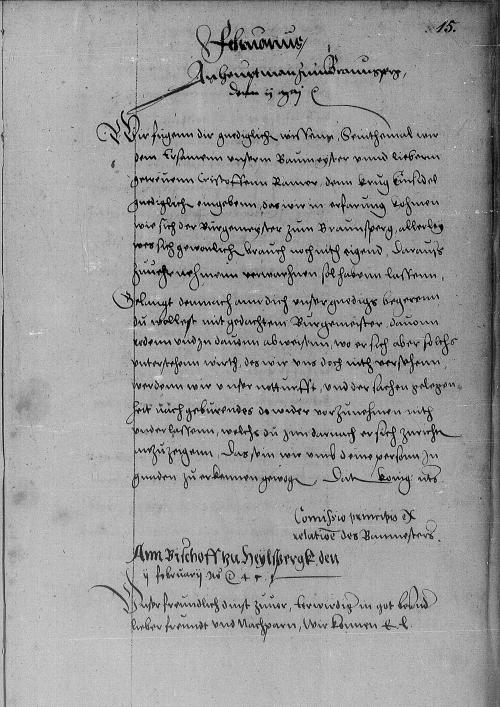 15.
Februarius
An hauptman zum Braunsperg,
den ij
Wir fugenn dir gnediglich wissenn, Seinthemal wir
dem Ersamenn unserm Baumeyster unnd liebenn
getreuenn Cristoffenn Ramer, denn krug Einsidel
gnediglich eingebenn, das wir in erfarung kohmen
wie sich der Burgemeyster zum Braunsperg, allerley
wes sich gewonlich brauch noch nith eigend, daraus
zuuehr nehmenn verwarhnen sol habenn lassenn,
Gelangt demnach ann dich unser gnedigs begerenn
du wollest mit gedachtem Burgemeister, dauonn
redenn und in dauon abweisenn, wo er sich aber solchs
understehenn wirth, des wir uns doch nith versehenn,
werdenn wir unser notturfft, und der sachen gelegen-
heit nach geburendes da wider vorzunehmen nith
underlassenn, welchs du im darnach er sich zurichten
anzuzeigenn, Das sein wir umb deine person in
gnaden zu erkennen geneigt, Dat. konig. uts
Comissio principis ex
relatione des Baumesters.
Ann Bischoff zu Heylsbergk den
ij februarij
Unser freundlich dinst zuuor, Erwirdig in got besund
lieber freundt und Nachparn, Wir konnen E. L.